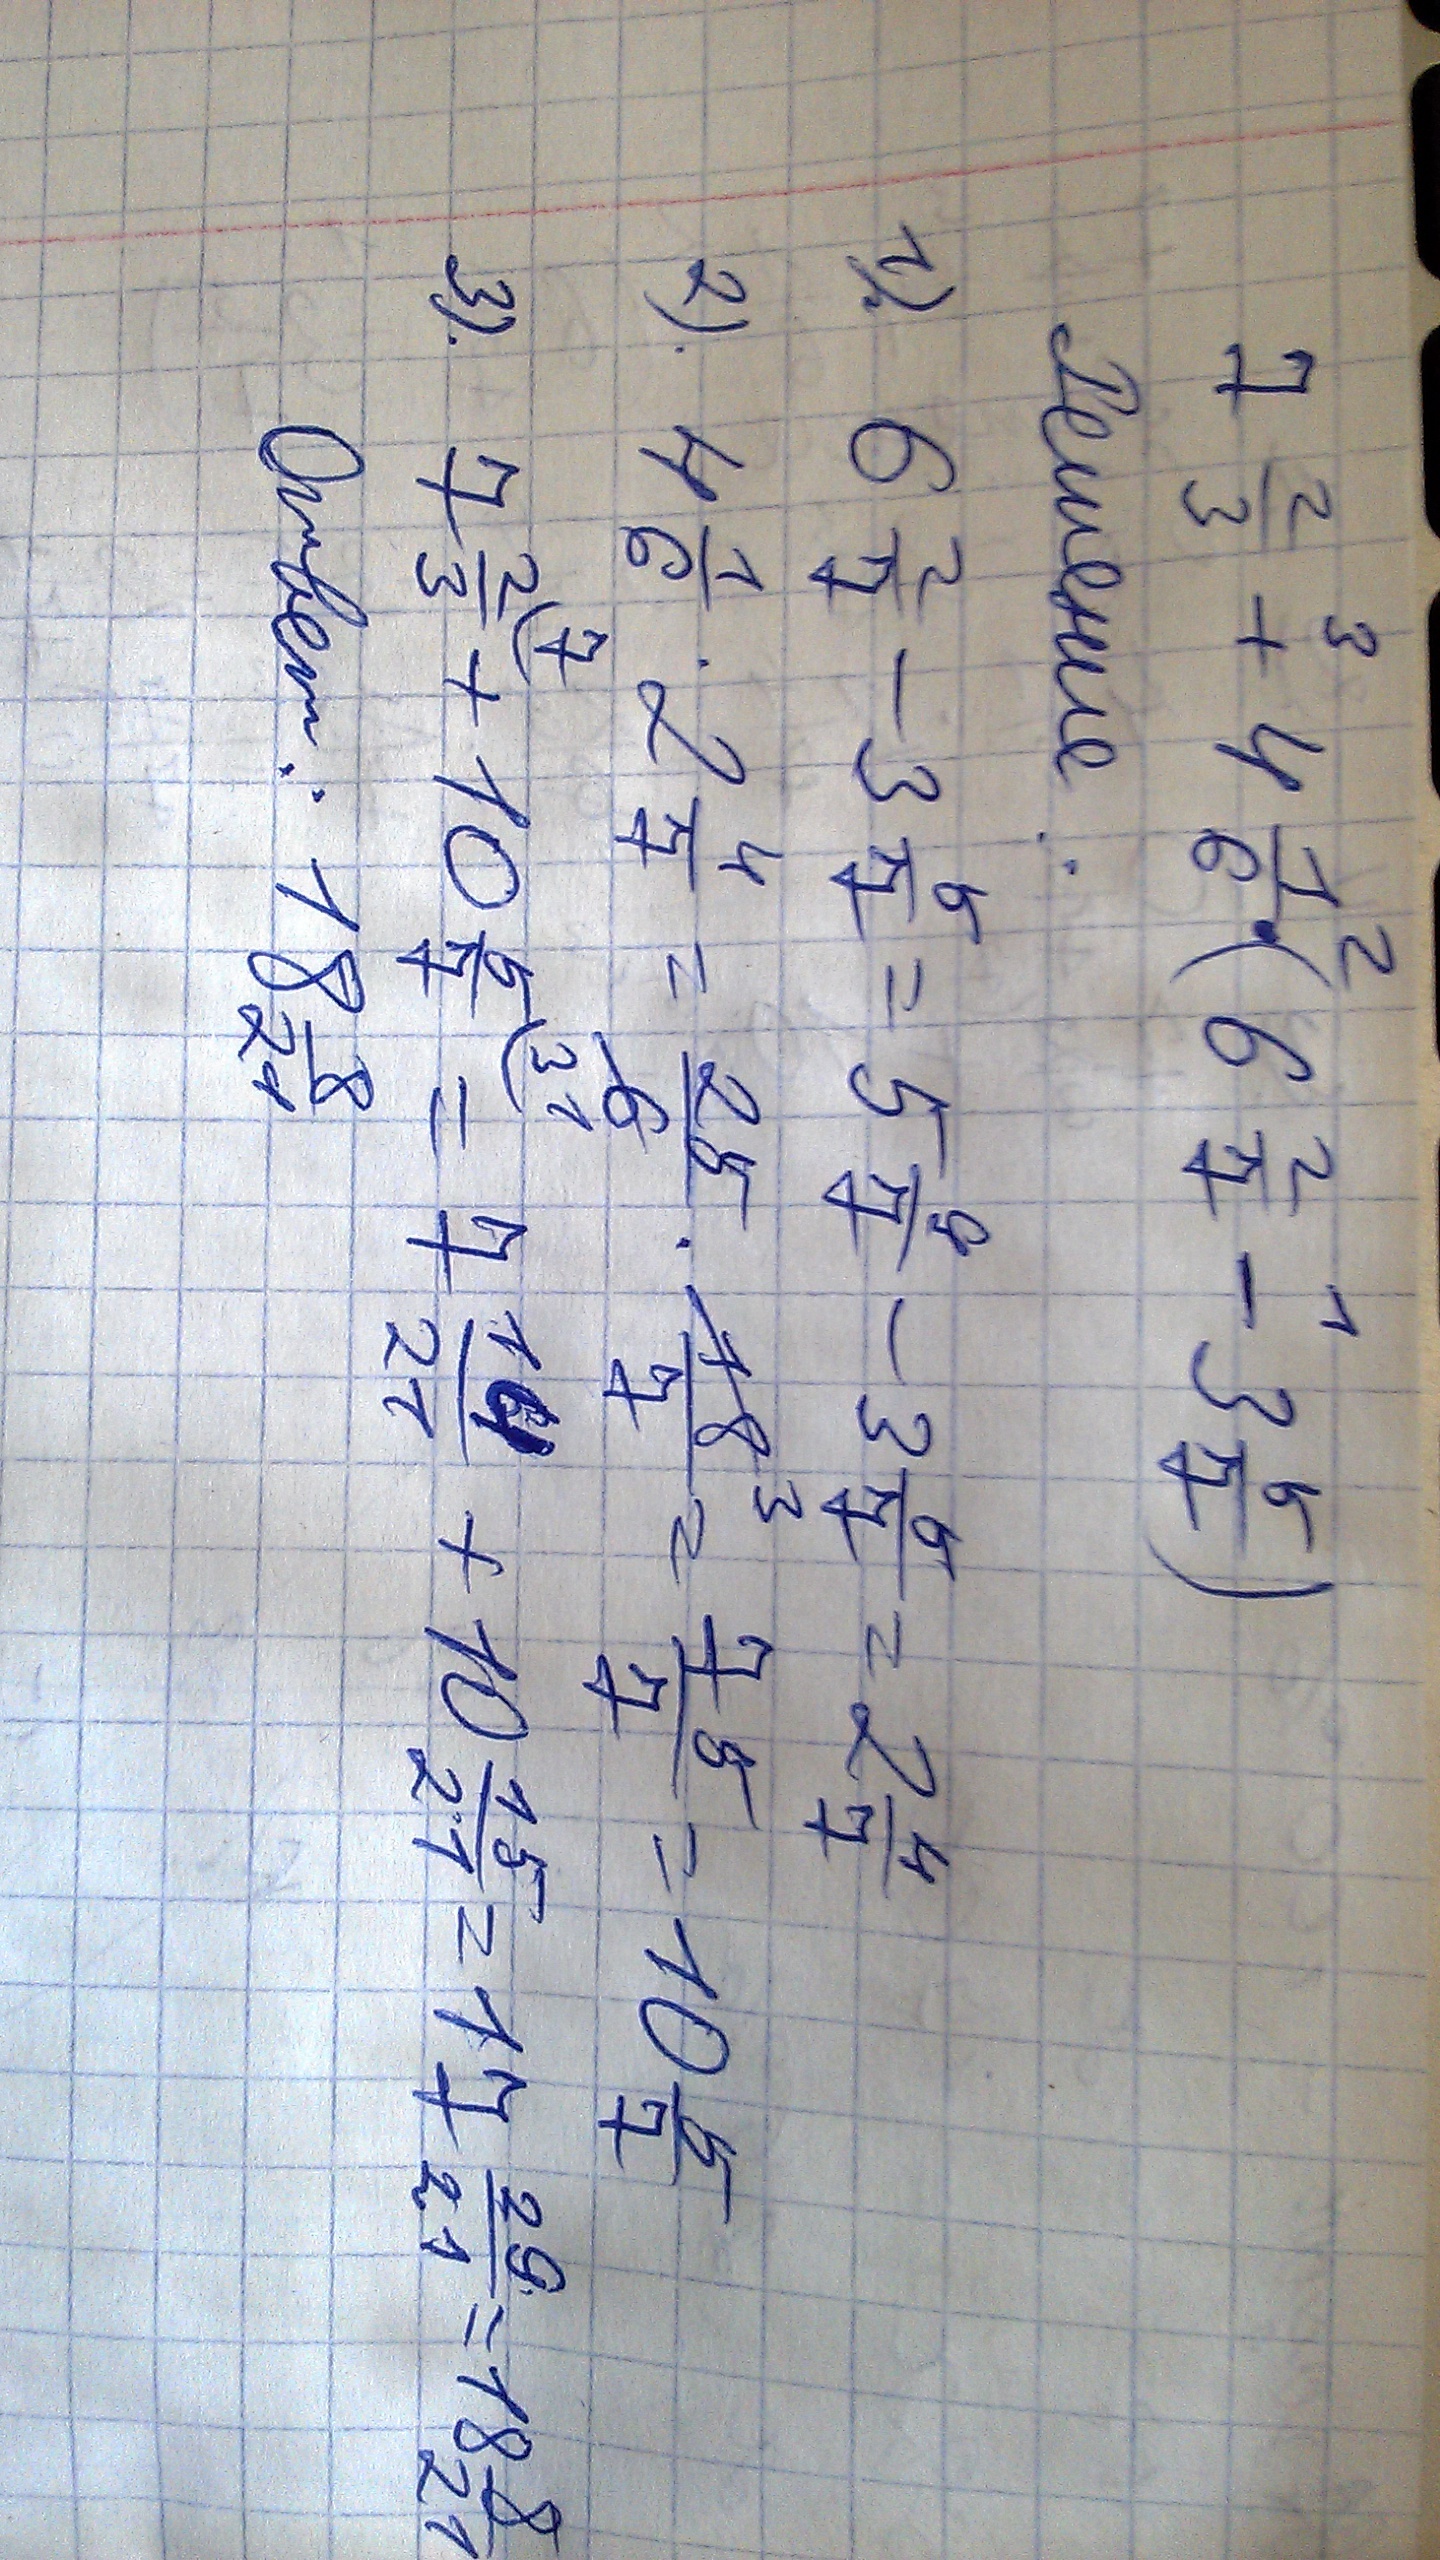 3 2 1
7 2/3 + 4 1/6 · (6 2/7 − 3 5/7)
Решение:
1). 6 2/7 − 3 5/7 = 5 9/7 − 3 5/7 = 2 4/7
2). 4 1/6 · 2 4/7 = 25/6 1 · 18/7 3 = 75/7 = 10 5/7
3). 7 2/3 (7 + 10 5/7 (3 = 7 14/21 + 10 15/21 = 17 29/21 = 18 8/21
Ответ: 18 8/21